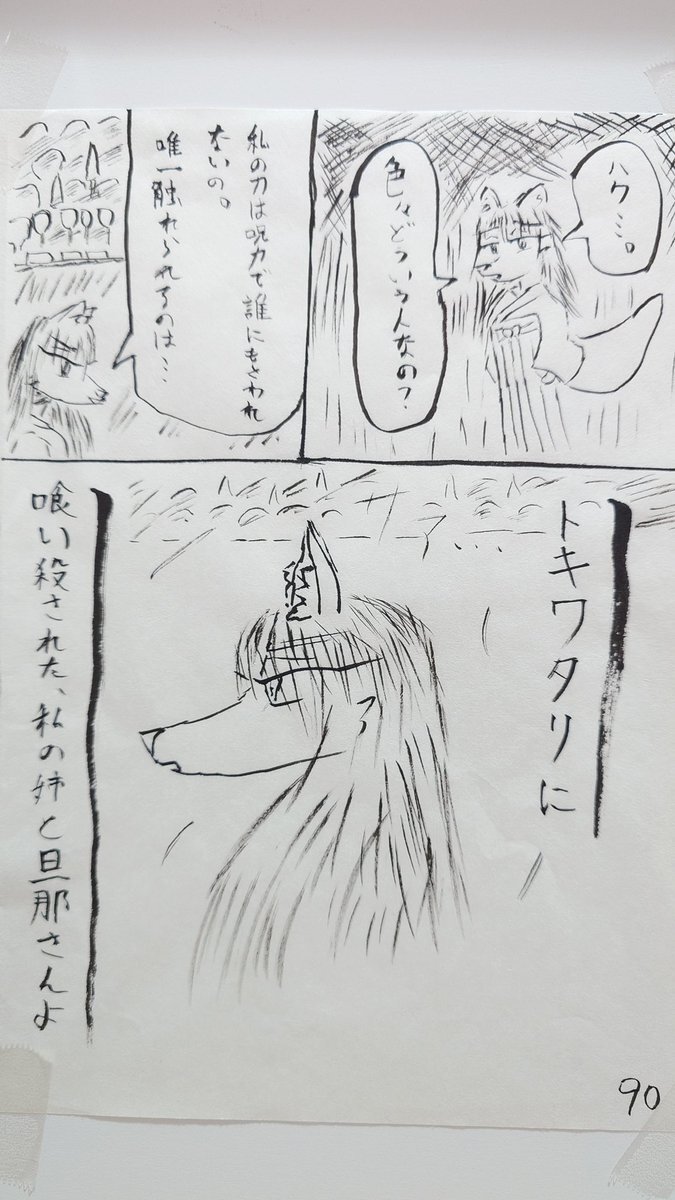 ハク…。
色々どういう人なの？
私の力は呪力で誰にもさわれ
ないの。
唯一触れられるのは…
トキワタリに
喰い殺された、私の姉と旦那さんよ
90